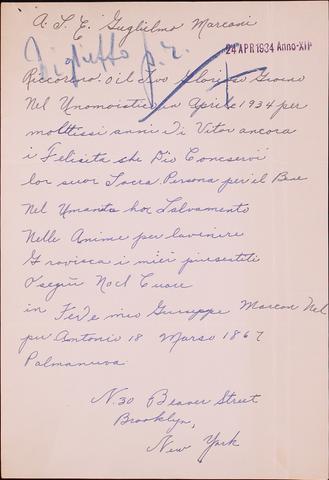 A. S. E. Guglielmo Marconi
Biglietto p. r.
24 APR 1934 Anno XII
Riccorero o il Suo Glorioso Giorno
Nel Unomoistico in Aprile 1934 per
molttissi anni di Vitor ancora
i Felisita che Dio Concservi
lor suor Sacra Persona per il Bene
Nel Umanta hoc Salvamento
Nelle Anime per lavinire
Gravisca i miei piresentiti
Osegui Nocl Cuore
in Fede mio Giuseppe Marcon Nel
per Antonio 18 Marso 1867
Palmanuva
N. 30 Beaver Street
Brooklyn,
New York